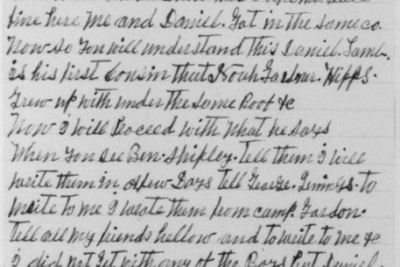 fine here Me and Daniel. Got in the same co.
Now so You will understand this Daniel. Lamb.
is his first Cousin that Noah Gardner. Hipps.
Grew up with under the same Roof &c
Now I will Proceed with What he says
When You see Ben. Shipley. tell them I will
write them in a few Days tell George. to
write to me I wrote them from camp Gordon.
tell all my friends hellow and to write to me &c
I did not get with any of the Boys but Daniel.